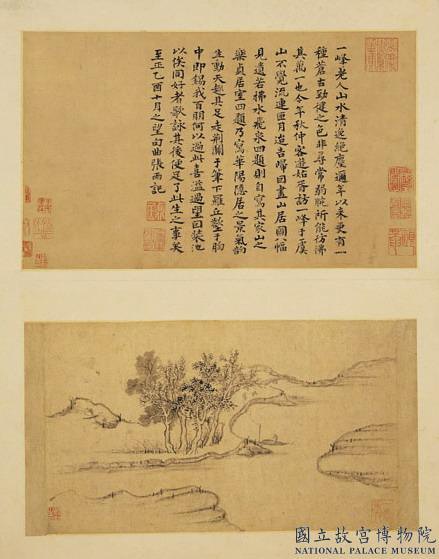 一峰老人山水清逸絕塵邇年以來更有一
種蒼古勁健之色非尋常弱腕所能彷彿
其萬一也今年秋仲客遊姑胥訪一峰于虞
山不覺流連匝月迨吉歸因畫山居圖八幅
見遺若拂水飛泉四題則自寫其家山之
樂貞居室四題乃寫華陽隱居之景氣韻
生動天趣具足走荊關于筆下羅丘壑于胸
中即錫我百朋何以過此喜溢過望因裝池
以俟同好者歌詠其後便足了此生之事矣
至正乙酉十月之望句曲張雨記
國立故宮博物院
NATIONAL PALACE MUSEUM